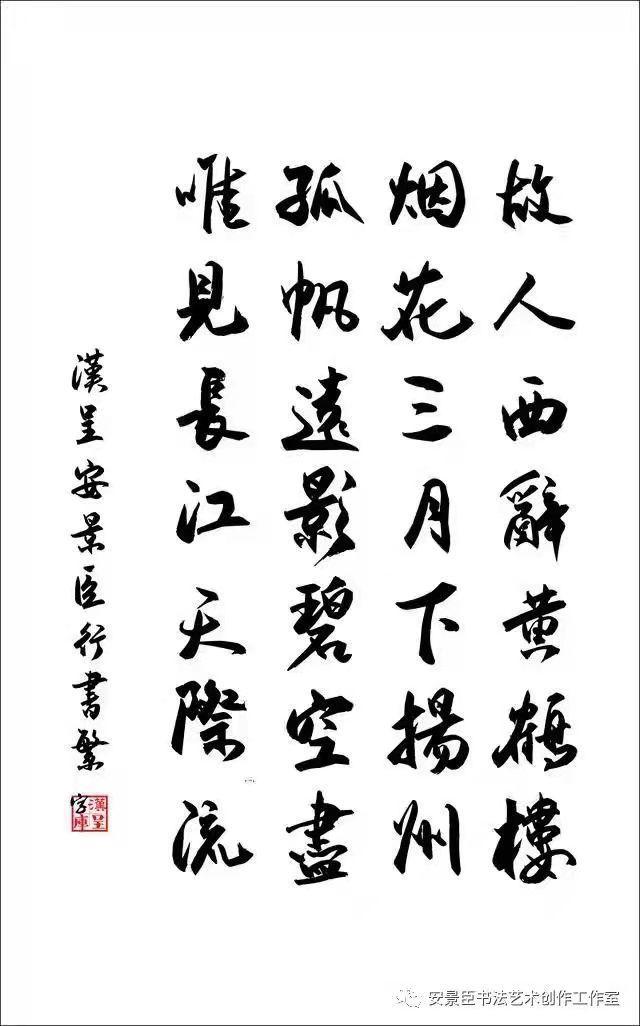 故人西辭黄鶴樓
烟花三月下揚州
孤帆遠影碧空盡
唯見長江天際流
漢呈安景臣行書繁
漢呈
字庫
安景臣书法艺术创作工作室